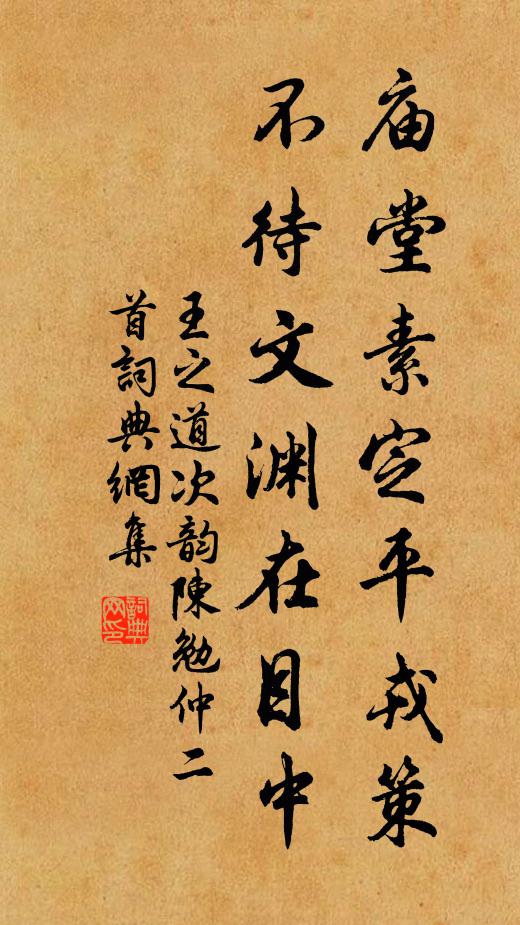 庙堂素定平戎策
不待文渊在目中
王之道次韵陳勉仲二
首詞典網集
詞典
网印